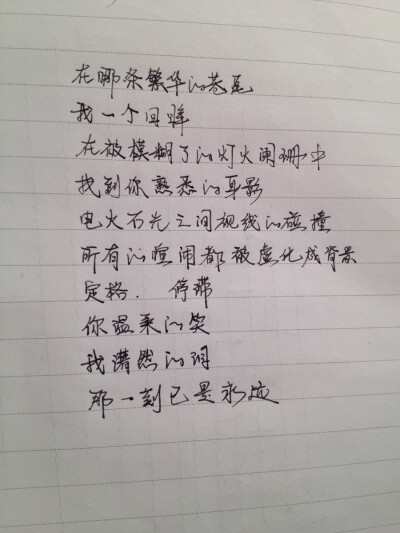 在哪条繁华的巷尾
我一个回眸
在被模糊了的灯火阑珊中
找到你熟悉的身影
电火石光之间视线的碰撞
所有的喧闹都被虚化成背景
定格.停滞
你温柔的笑
我潸然的泪
那一刻已是永远